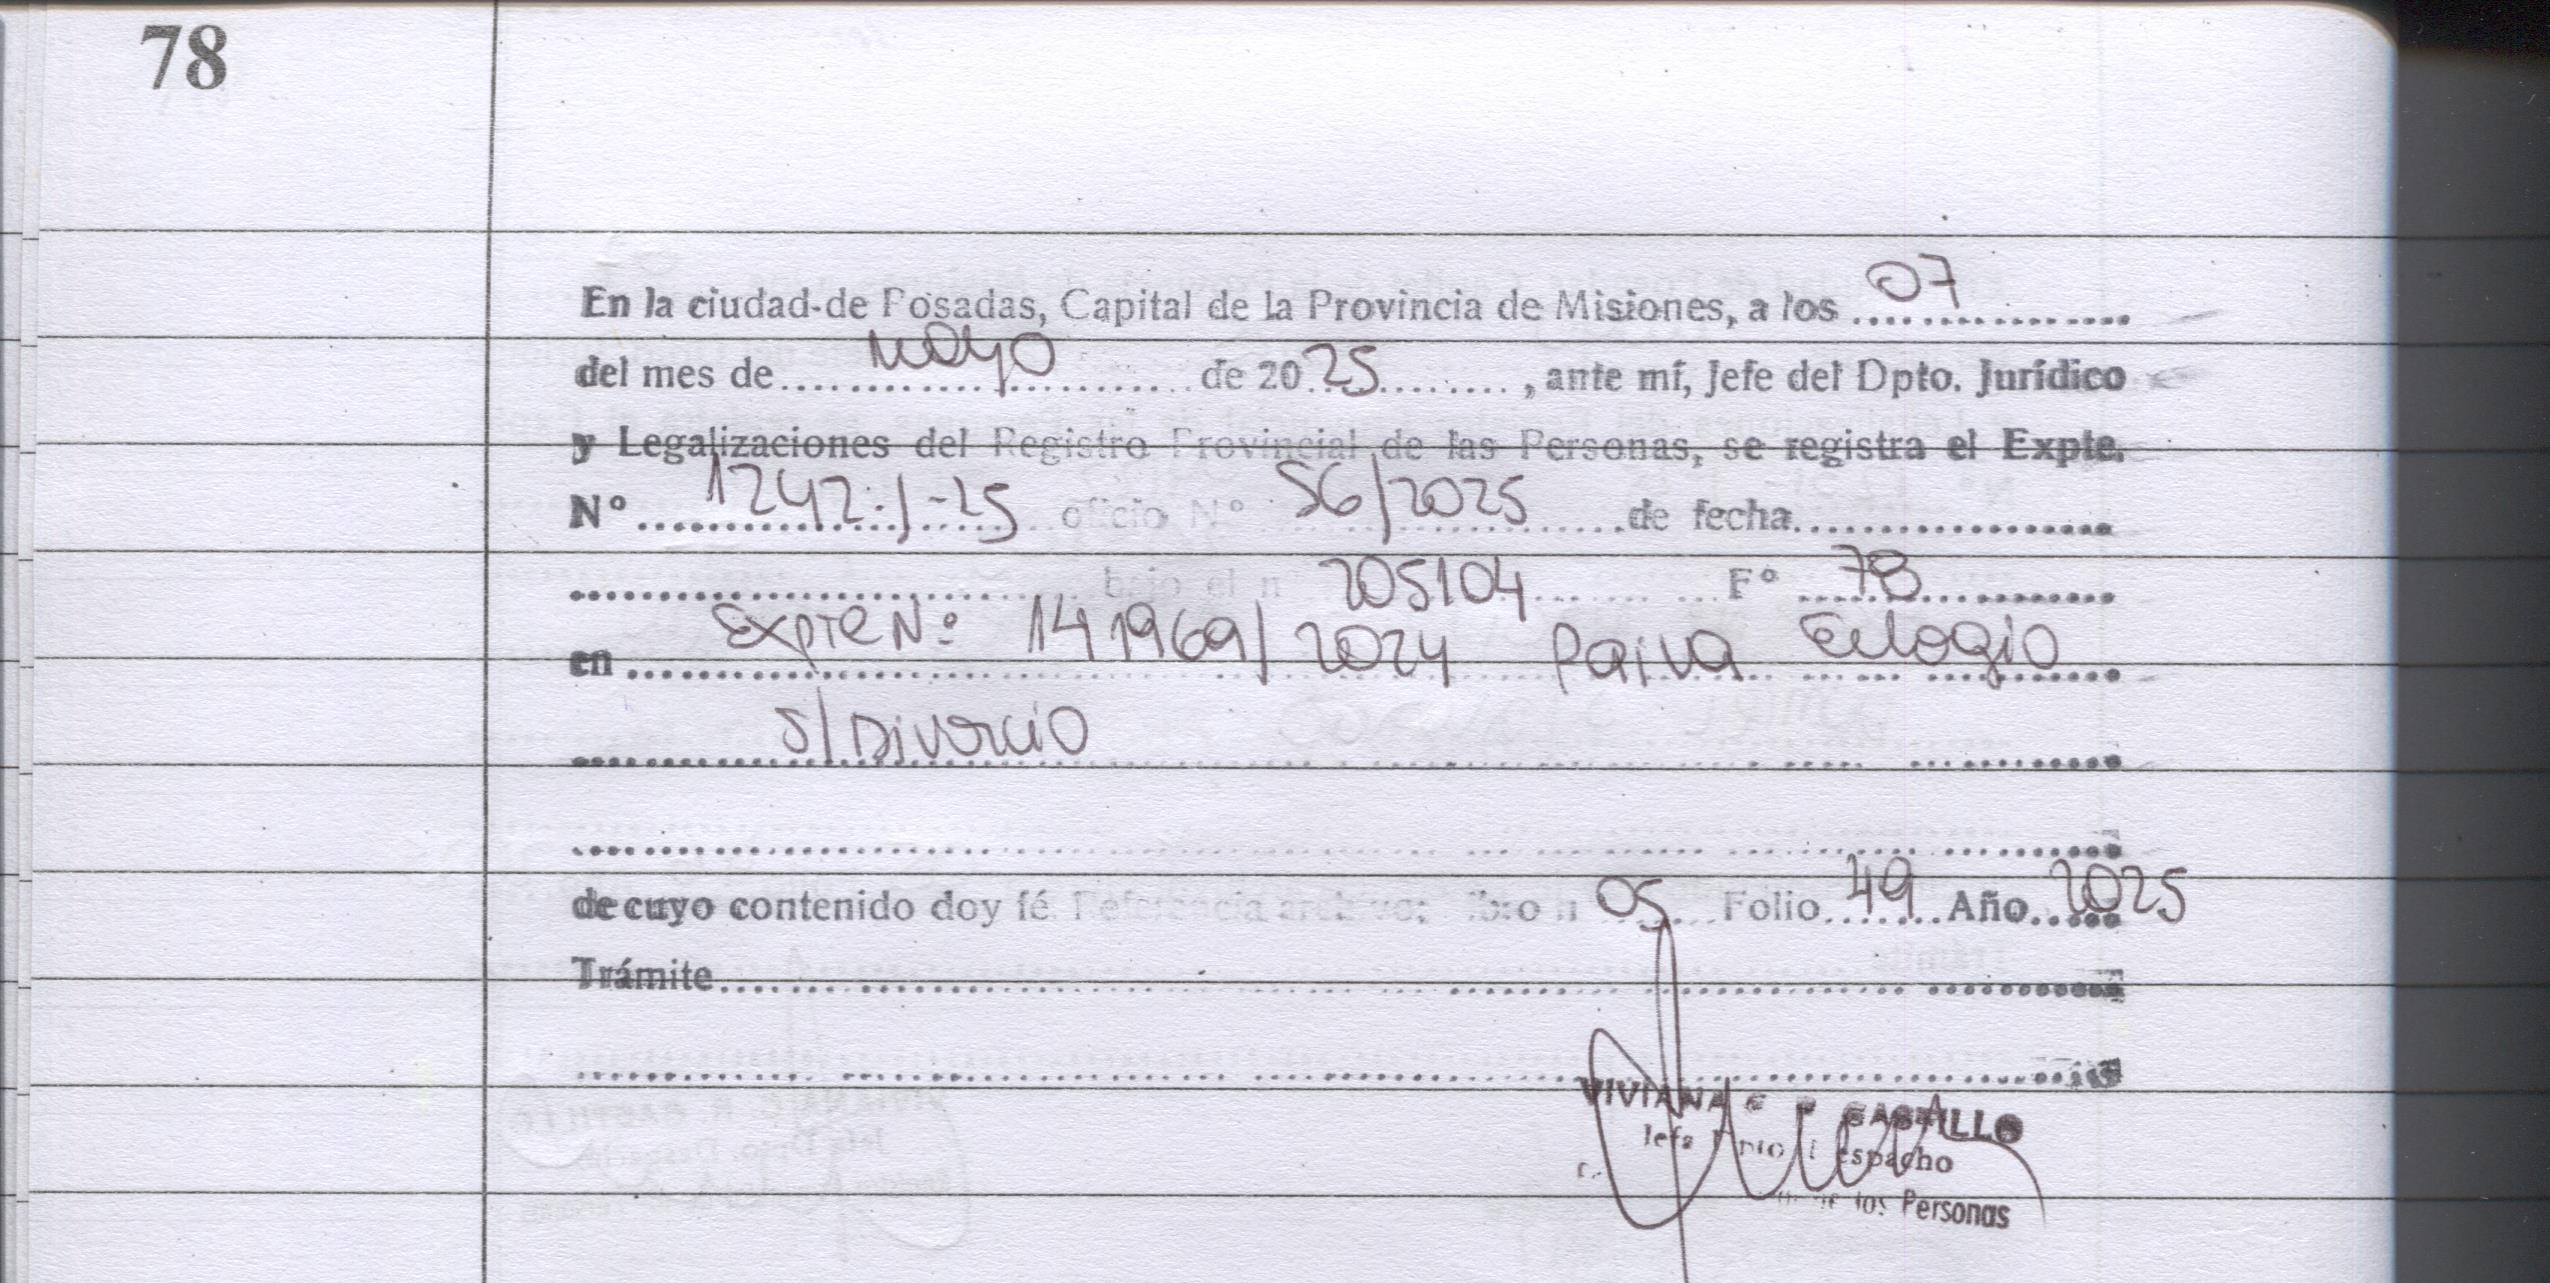 78
En la ciudad de Posadas, Capital de la Provincia de Misiones, a los 07
del mes de mayo de 2025, ante mí, Jefe del Dpto. Jurídico
y Legalizaciones del Registro Provincial de las Personas, se registra el Expte.
Nº 1242-J-25 oficio Nº 56/2025 de fecha
bajo el n 205104 Fº 78
en Expte Nº 141969/2024 Paiva Eulogio
S/Divorcio
de cuyo contenido doy fé Referencia archivo: libro n 05 Folio 49 Año 2025
Trámite
VIVIANA CASTILLO
Jefa Dpto Despacho
de las Personas